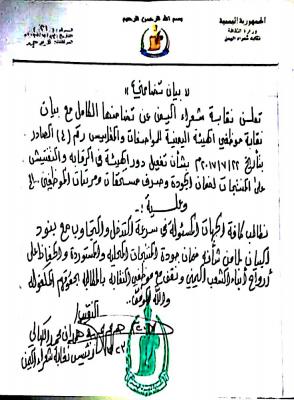 بسم الله الرحمن الرحيم
الجمهورية اليمنية
وزارة الثقافة
نقابة شعراء اليمن
« بيان تضامني »
تعلن نقابة شعراء اليمن عن تضامنها الكامل مع بيان
نقابة موظفي الهيئة اليمنية للمواصفات والمقاييس رقم (٤) الصادر
بتأريخ ٢٠١٧/٧/٢٢م بشأن تفعيل دور الهيئة في الرقابة والتفتيش
على المنتجات لضمان الجودة وصرف مستحقات ومرتبات الموظفين ..الخ
وعليه :-
نطالب كافة الجهات المسئولة في سرعة التدخل والتجاوب مع بنود
البيان لما من شأنه ضمان جودة المنتجات المحلية والمستوردة والحفاظ على
أرواح أبناء الشعب اليمني ونقف مع موظفي النقابة بالمطالبة بحقوقهم المكفولة
والله الموفق..
النقيب/
رئيس نقابة شعراء اليمن